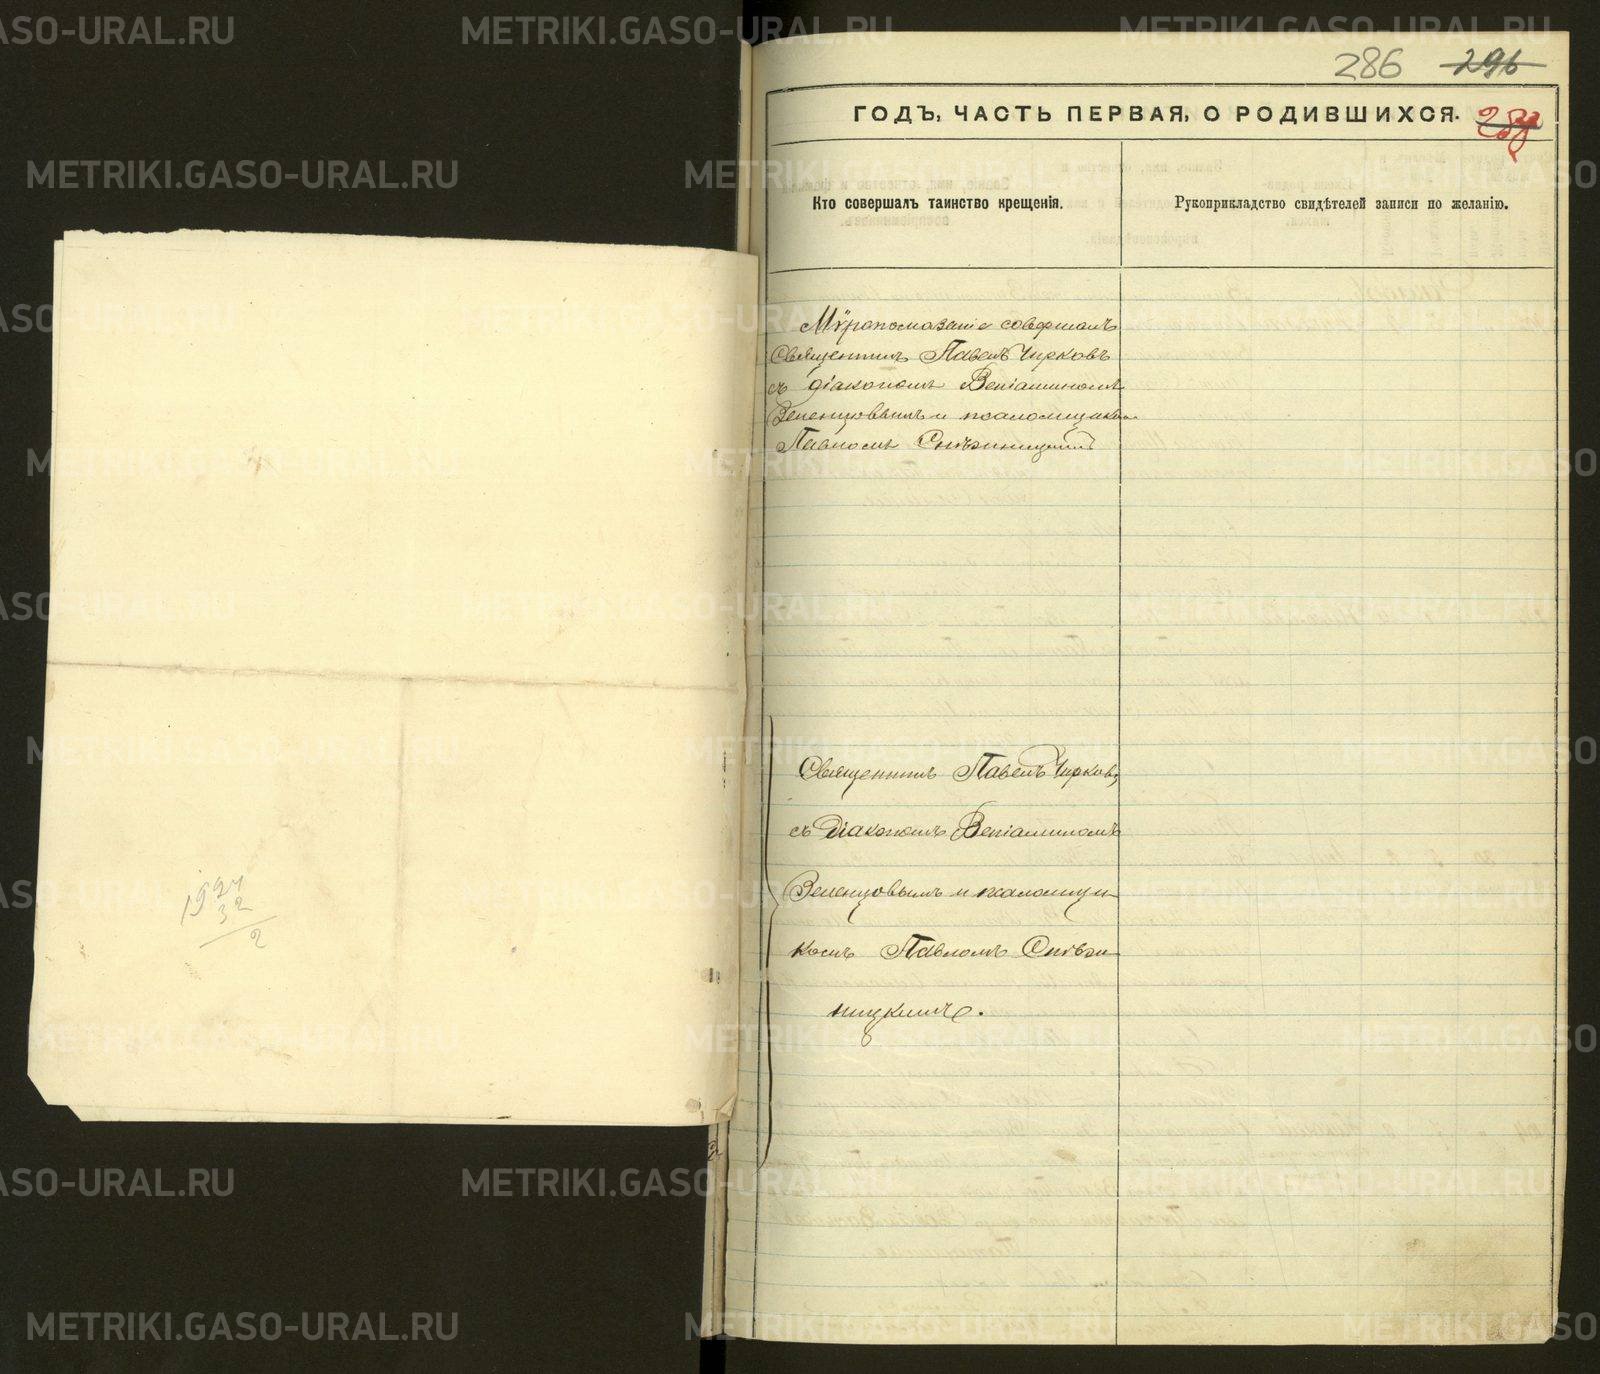 286 296
ГОДЪ, ЧАСТЬ ПЕРВАЯ, О РОДИВШИХСЯ.
Кто совершалъ таинство крещенія.
Рукоприкладство свидѣтелей записи по желанію.
Мѵропомазаніе совершалъ
Священникъ Павелъ Чирковъ
съ діакономъ Веніаминомъ
Зеленцовымъ и псаломщикомъ
Павломъ Снѣжницкимъ
Священникъ Павелъ Чирковъ,
съ Діакономъ Веніаминомъ
Зеленцовымъ и псаломщи-
комъ Павломъ
ницкимъ.
1924
32
2
METRIKI.GASO-URAL.RU